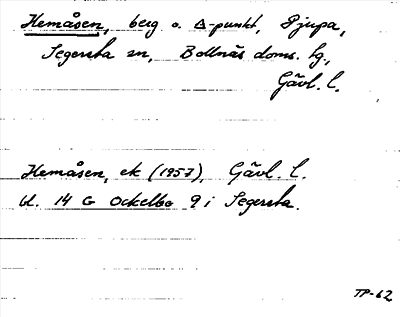 Hemåsen, berg o. Δ-punkt, Djupa,
Segersta sn, Bollnäs doms. hg.,
Gävl. l.
Hemåsen, ek (1957), Gävl. l.
bl. 14 G Ockelbo 9 i Segersta.
TP-62